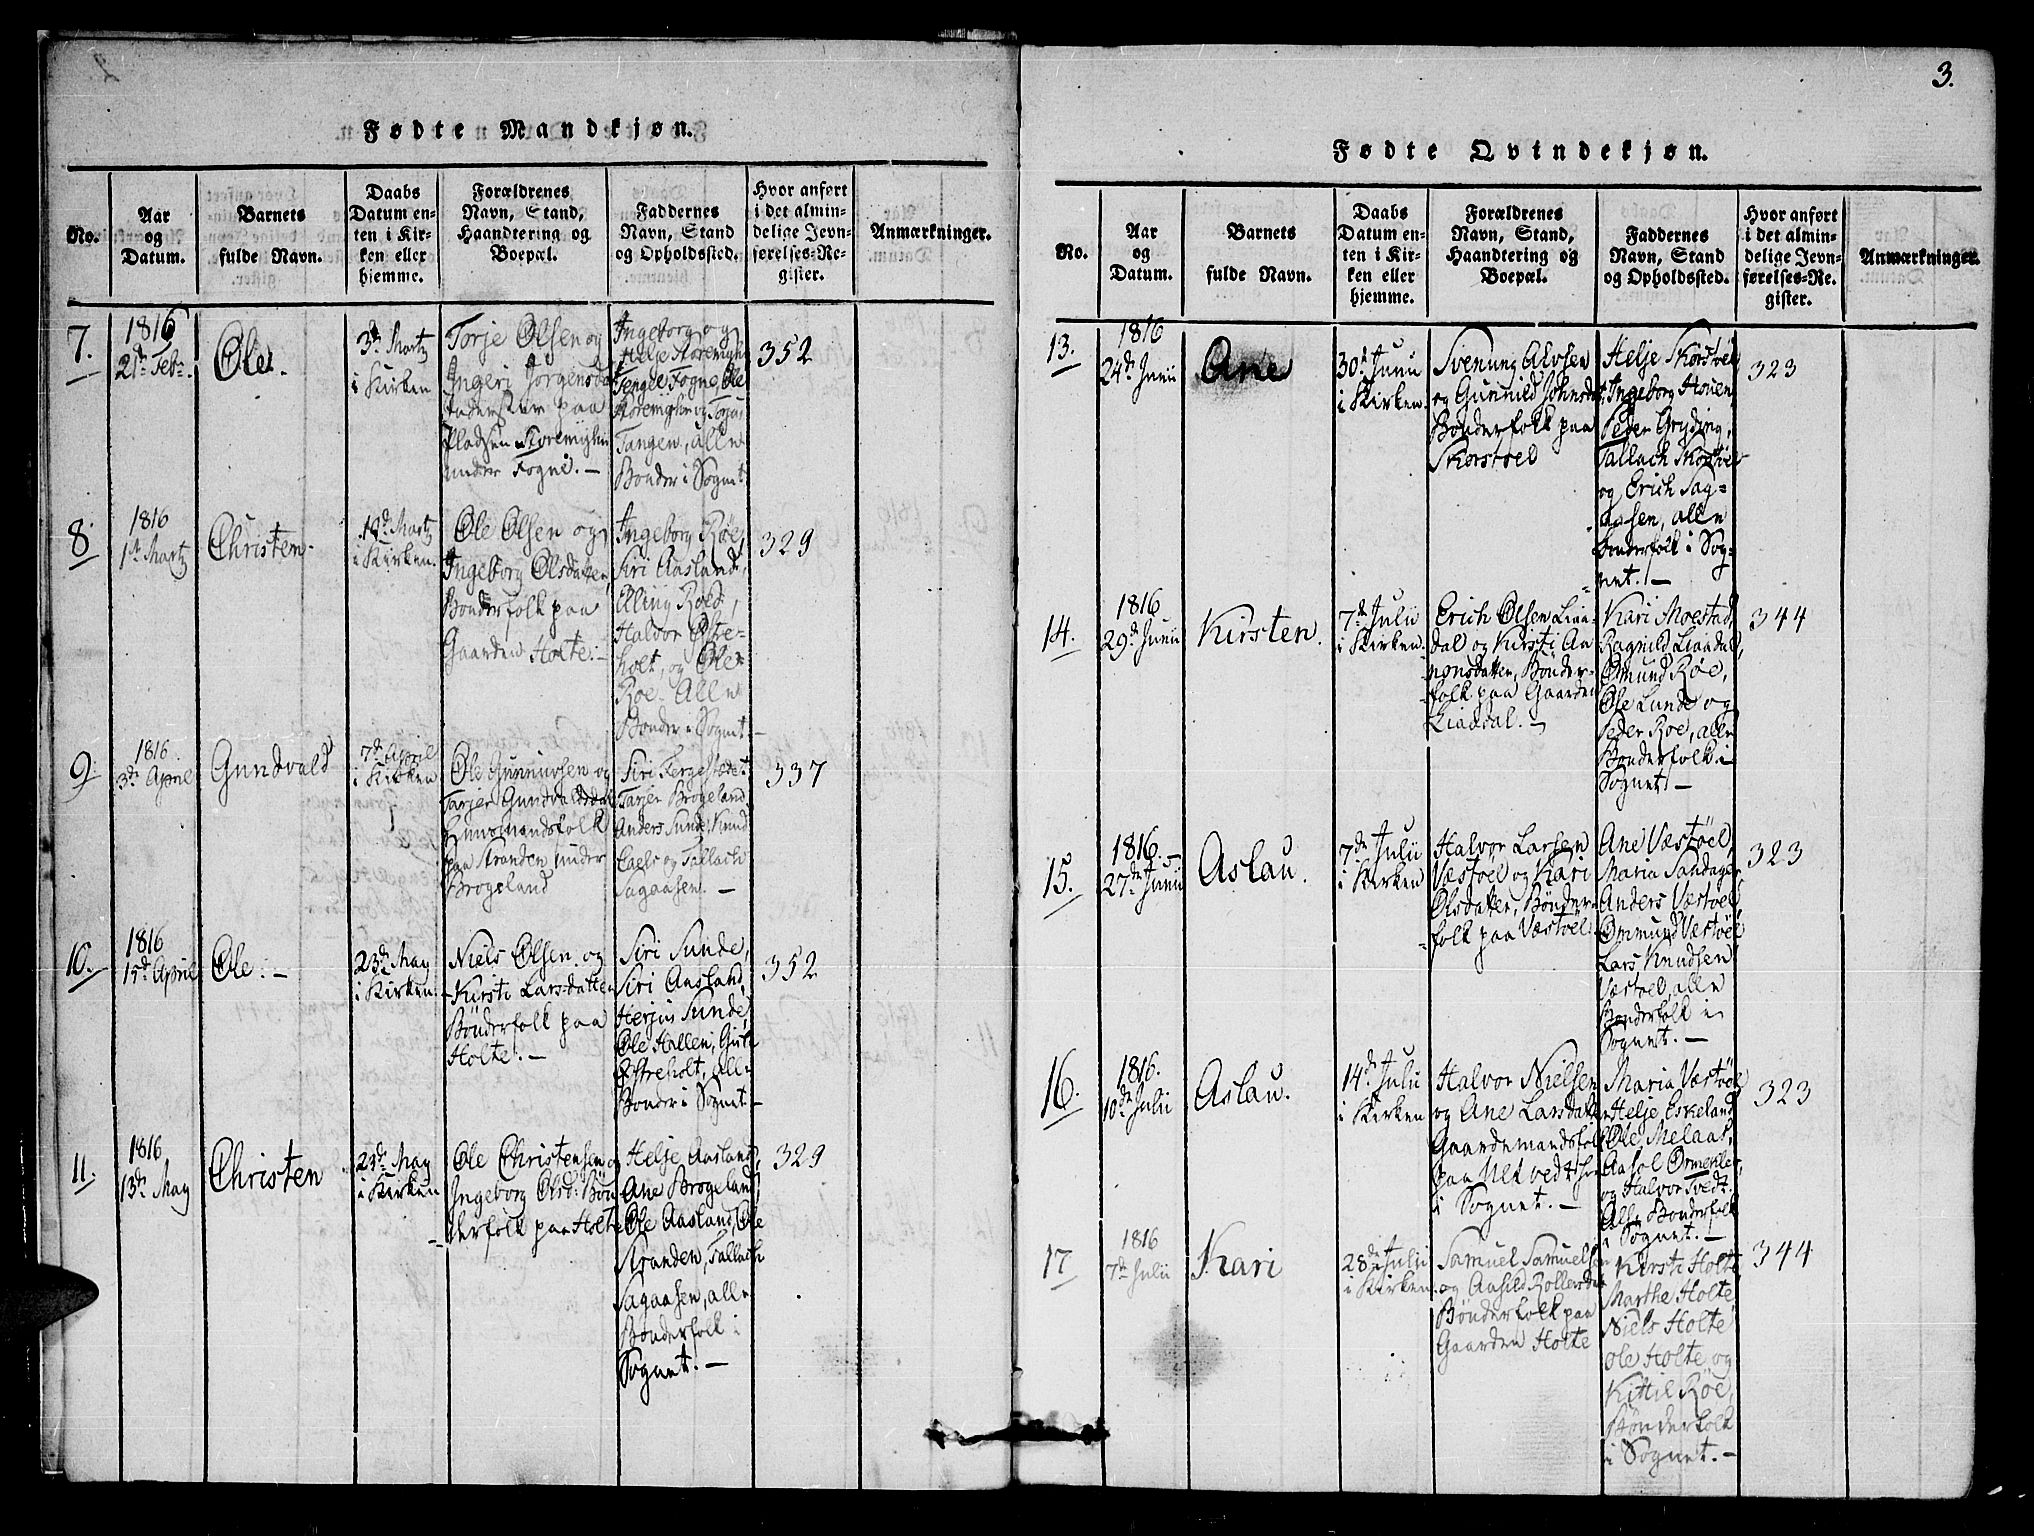 3.
Fødte Mandkjøn.
No.
Aar
og
Datum.
Barnets
fulde Navn.
Daabs
Datum en-
ten i Kir-
ken eller
hjemme.
Forældrenes
Navn, Stand,
Haandtering og
Boepæl.
Faddernes
Navn, Stand
og Opholdssted.
Hvor anført
i det almin-
delige Jevn-
førelses-Re-
gister.
Anmærkninger.
7.
1816
21de Febr.
Ole.
3de Martz
i Kirken
Torje Olsen og
Ingeri Jørgensd
paa
Pladsen
under Fogne. —
Ingeborg og
Helje
Fogne, Ole
Tangen, alle
Bønder i Sognet
352
8
1816
1te Martz
Christen.
10de Martz
i Kirken.
Ole Olsen og
Ingeborg Olsdatter,
Bønderfolk paa
Gaarden Holte. —
Ingeborg Røe,
Siri Aasland,
Elling Roed,
Halvor Østre-
holt, og Ole
Roe. Alle
Bønder i Sognet —
329
9.
1816.
3de April
Gundvald
7de April
i Kirken
Ole Gunnuvsen og
Tarjer Gundvaldsdat
Huusmandsfolk
paa Stranden under
Brogeland
Siri
Tarjer Brogeland
Anders Sunde, Knud
og Tallach
Sagaasen. —
337
10.
1816
15de April
Ole. —
23de May
i Kirken.
Niels Olsen og
Kirsti Larsdatter
Bønderfolk paa
Holte. —
Siri Sunde,
Siri Aasland,
Herjus Sunde,
Ole Hallen,
Østreholt, alle
Bønder i Sognet —
352
11.
1816
13de May
Christen
23de May
i Kirken
Ole Christensen og
Ingeborg Olsd: Bøn-
derfolk paa Holte
Helje Aasland,
Ane Brogeland,
Ole Aasland, Ole
Stranden, Tallach
Sagaasen, alle
Bønderfolk i
Sognet. —
329
Fødte Qvindekjøn.
No.
Aar
og
Datum.
Barnets
fulde Navn.
Daabs
Datum en-
ten i Kir-
ken eller
hjemme.
Forældrenes
Navn, Stand,
Haandtering og
Boepæl.
Faddernes
Navn, Stand
og Opholdssted.
Hvor anført
i det almin-
delige Jevn-
førelses-Re-
gister.
Anmærkninger.
13.
1816
24de Junii
Ane
30te Junii
i Kirken.
Svenung Alvsen
og Gunnild Johnsd
Bønderfolk paa
Skorstoel
Helje Skorstøel
Ingeborg
Peder Gryding,
Tallach
og Erich Sag-
aasen, alle
Bønderfolk i Sog-
net. —
323
14.
1816
29de Junii
Kirsten.
7de Julii
i Kirken.
Erich Olsen Liaa-
dal og Kirsti Aa-
nonsdatter, Bønder-
folk paa Gaarden
Liaadal. —
Kari Moestad,
Ragnild Liaadal,
Omund Røe,
Ole Lunde og
Peder Roe, alle
Bønderfolk i
Sognet —
344
15.
1816. —
27de Junii
Aslau.
7de Julii
i Kirken
Halvor Larsen
Væstøel og Kari
Olsdatter, Bønder-
folk paa Væstøel
Ane Væstøel,
Maria Sandager,
Anders Væstøel
Ommund Væstøel
Lars Knudsen
Væstøel, alle
Bønderfolk i
Sognet. —
323
16.
1816.
10de Julii
Aslau.
14de Julii
i Kirken
Halvor Nielsen
og Ane Larsdatter
Gaardemandsfolk
paa
i Sognet. —
Maria Væstøel
Helje Eskeland,
Ole Melaas,
og Halvor Tvedt.
Alle Bønderfolk
i Sognet. —
323
17
1816
7de Julii
Kari
28de Julii
i Kirken
Samuel Samuelsen
og Aasild Rollevsd
Bønderfolk paa
Gaarden Holte
Kirsti Holte
Marthe Holte
Niels Holte
Ole Holte, og
Kittil Røe,
Bønderfolk
i Sognet. —
344